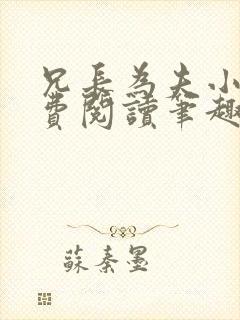 兄長為夫小
費閱讀筆趣
蘇秦墨